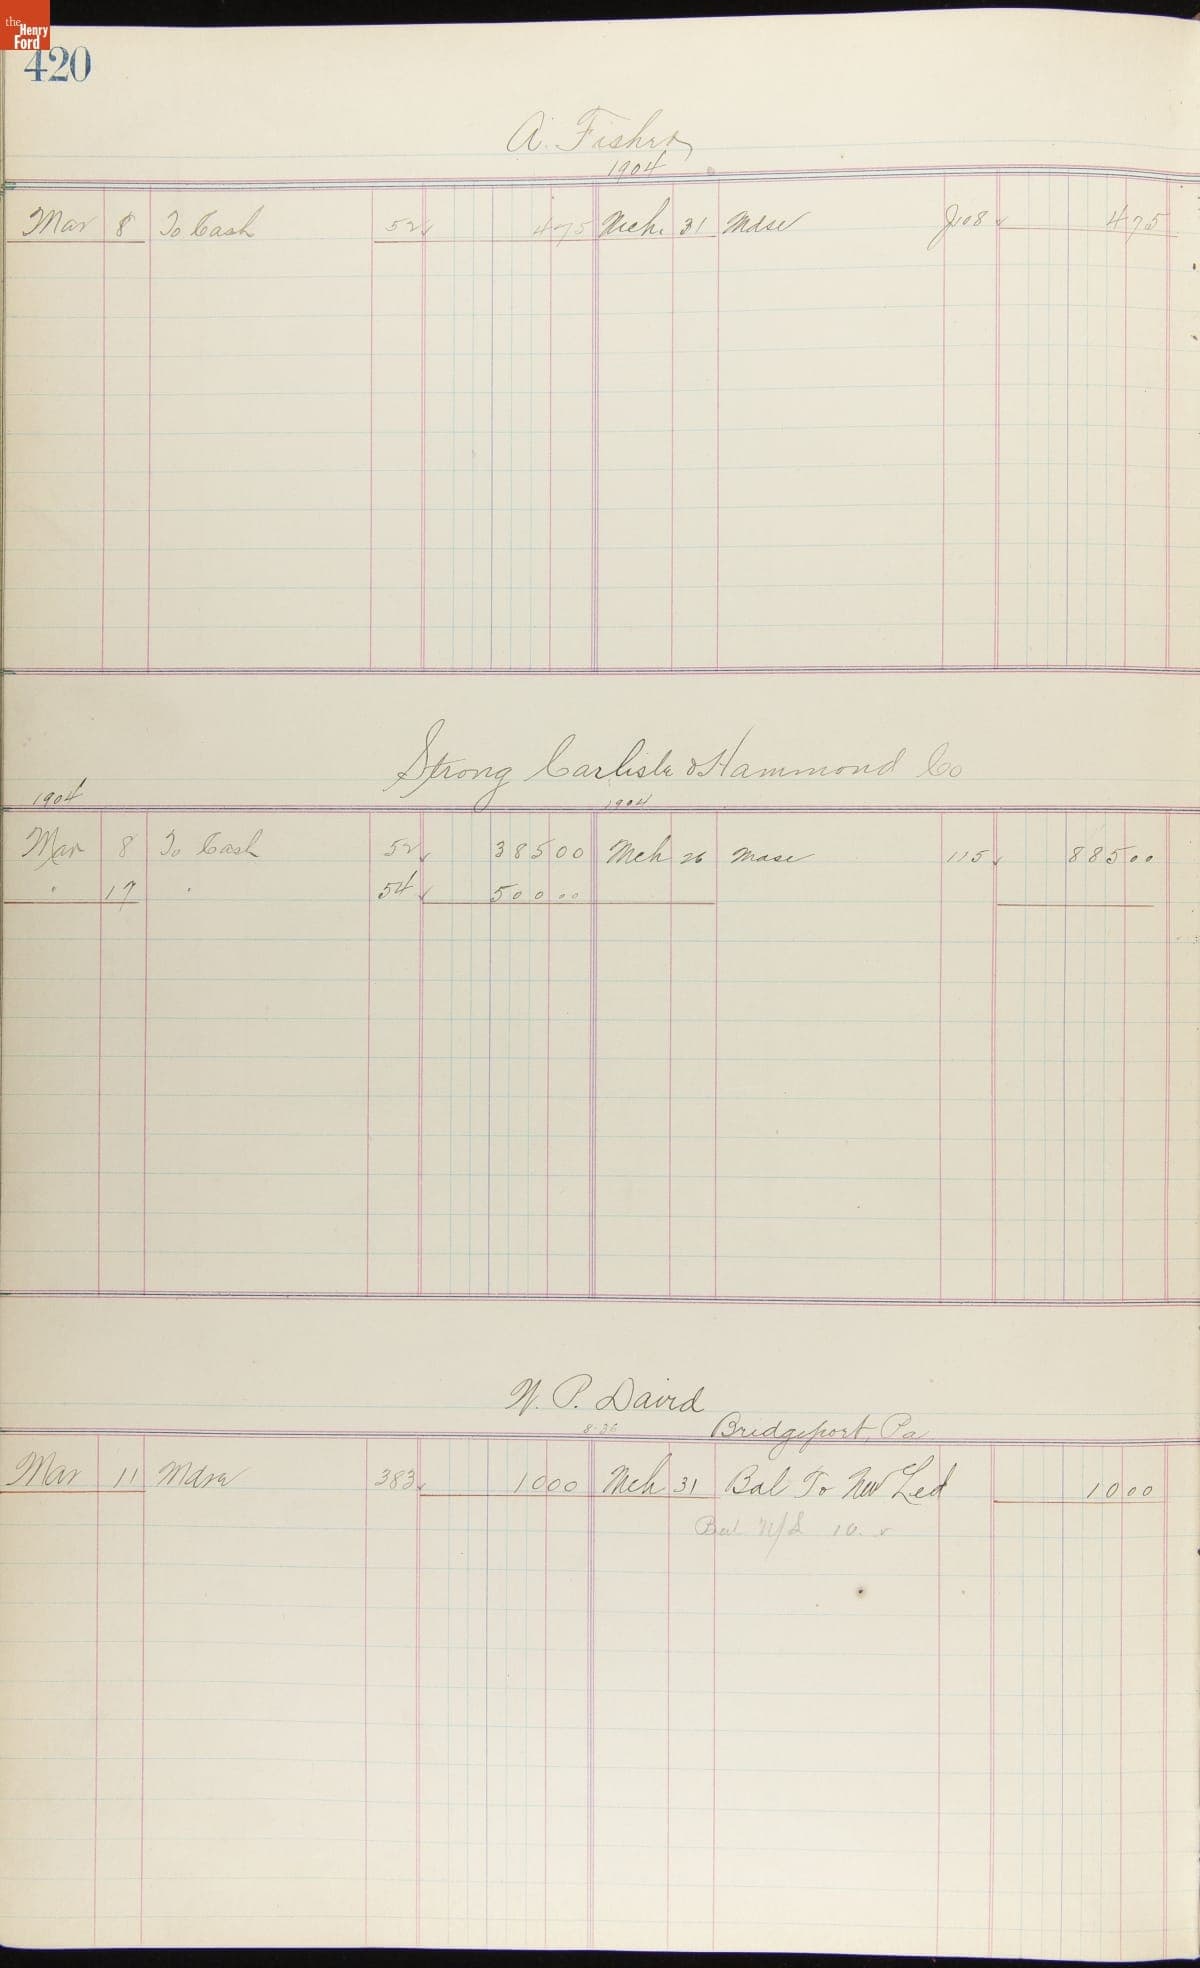 the Henry Ford
420
A. Fisher
1904
Mar 8 To Cash 52 475 Mch. 31 Mdse J108 475
Strong Carlisle & Hammond Co
1904 1904
Mar 8 To Cash 52 38500 Mch 26 Mdse 115 88500
" 17 " 54 50000
W. P. David
8-30 Bridgeport, Pa
Mar 11 Mdse 383 1000 Mch 31 Bal To New Led 1000
Bal N/L 10.